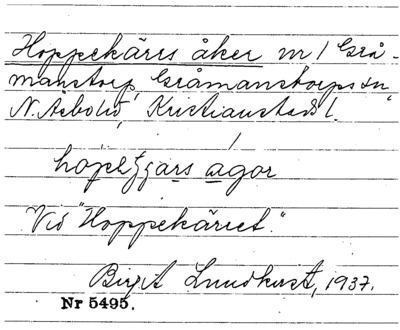 Hoppekärrs åker m / Grå-
manstorp, Gråmanstorps sn
N. Åsbohd, Kristianstads l.
agor
Vid "Hoppekärret."
Birgit Lundkvist, 1937.
Nr 5495.